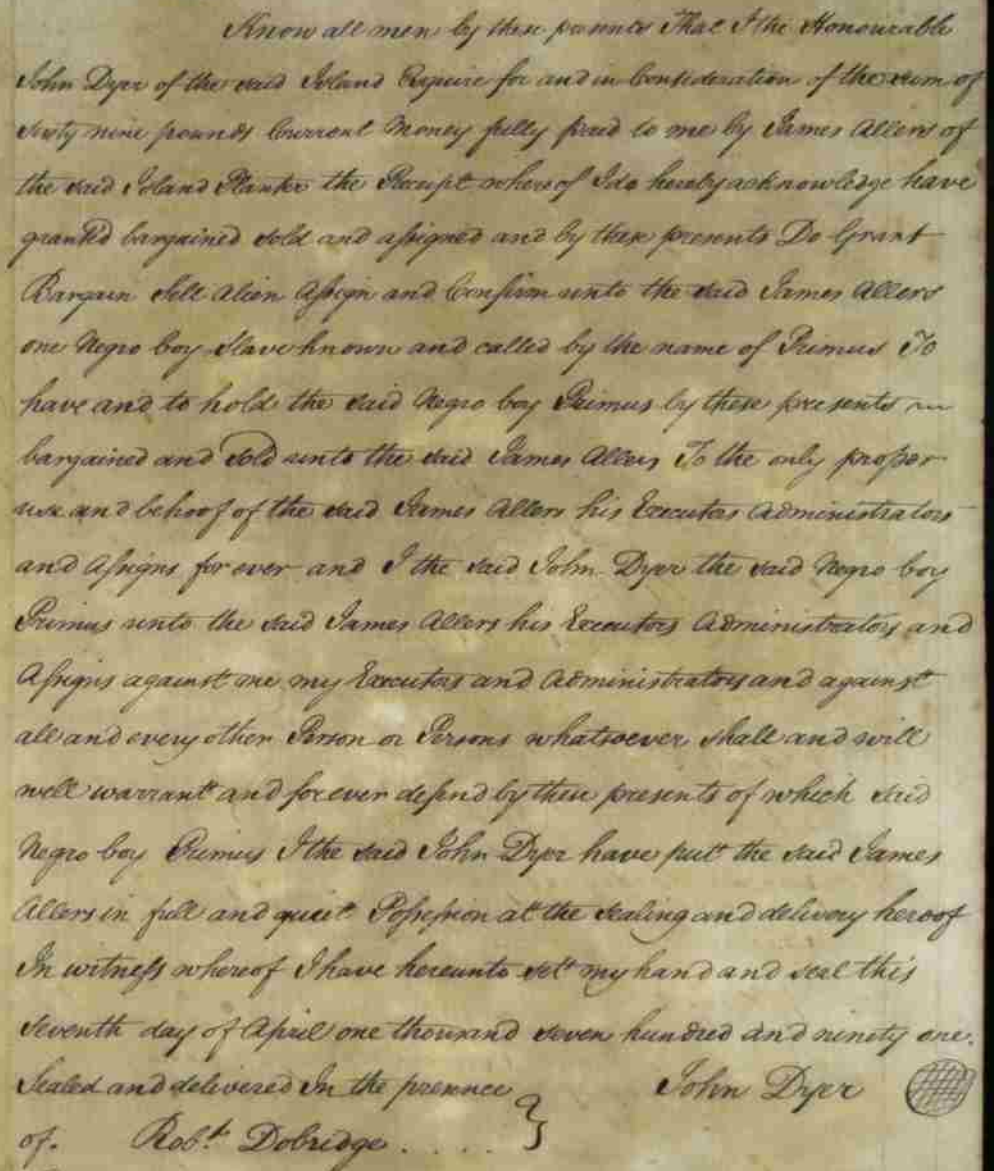 Know all men by these presents That I the Honourable
John Dyer of the said Island Esquire for and in Consideration of the sum of
sixty nine pounds Current Money fully paid to me by James Allers of
the said Island Planter the Receipt whereof I do hereby acknowledge have
granted bargained sold and assigned and by these presents Do Grant
Bargain Sell Alien Assign and Confirm unto the said James Allers
one Negro boy Slave known and called by the name of Primus To
have and to hold the said Negro boy Primus by these presents
bargained and sold unto the said James Allers To the only proper
use and behoof of the said James Allers his Executors Administrators
and Assigns for ever and I the said John Dyer the said Negro boy
Primus unto the said James Allers his Executors Administrators and
Assigns against me my Executors and Administrators and against
all and every other Person or Persons whatsoever shall and will
well warrant and forever defend by these presents of which said
Negro boy Primus I the said John Dyer have put the said James
Allers in full and quiet Possession at the sealing and delivery hereof
In witness whereof I have hereunto set my hand and seal this
seventh day of April one thousand seven hundred and ninety one.
Sealed and delivered In the presence } John Dyer
of. Robt. Dobridge . . . .